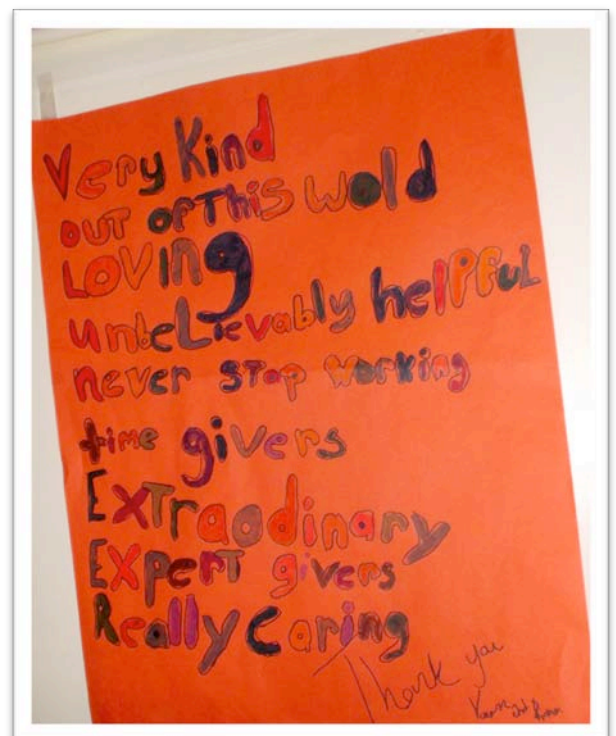 Very Kind
out of This wold
LOVING
unbeLievably helPFuL
never stop working
time givers
ExTraodinary
Expert givers
Really caring
Thank you
and